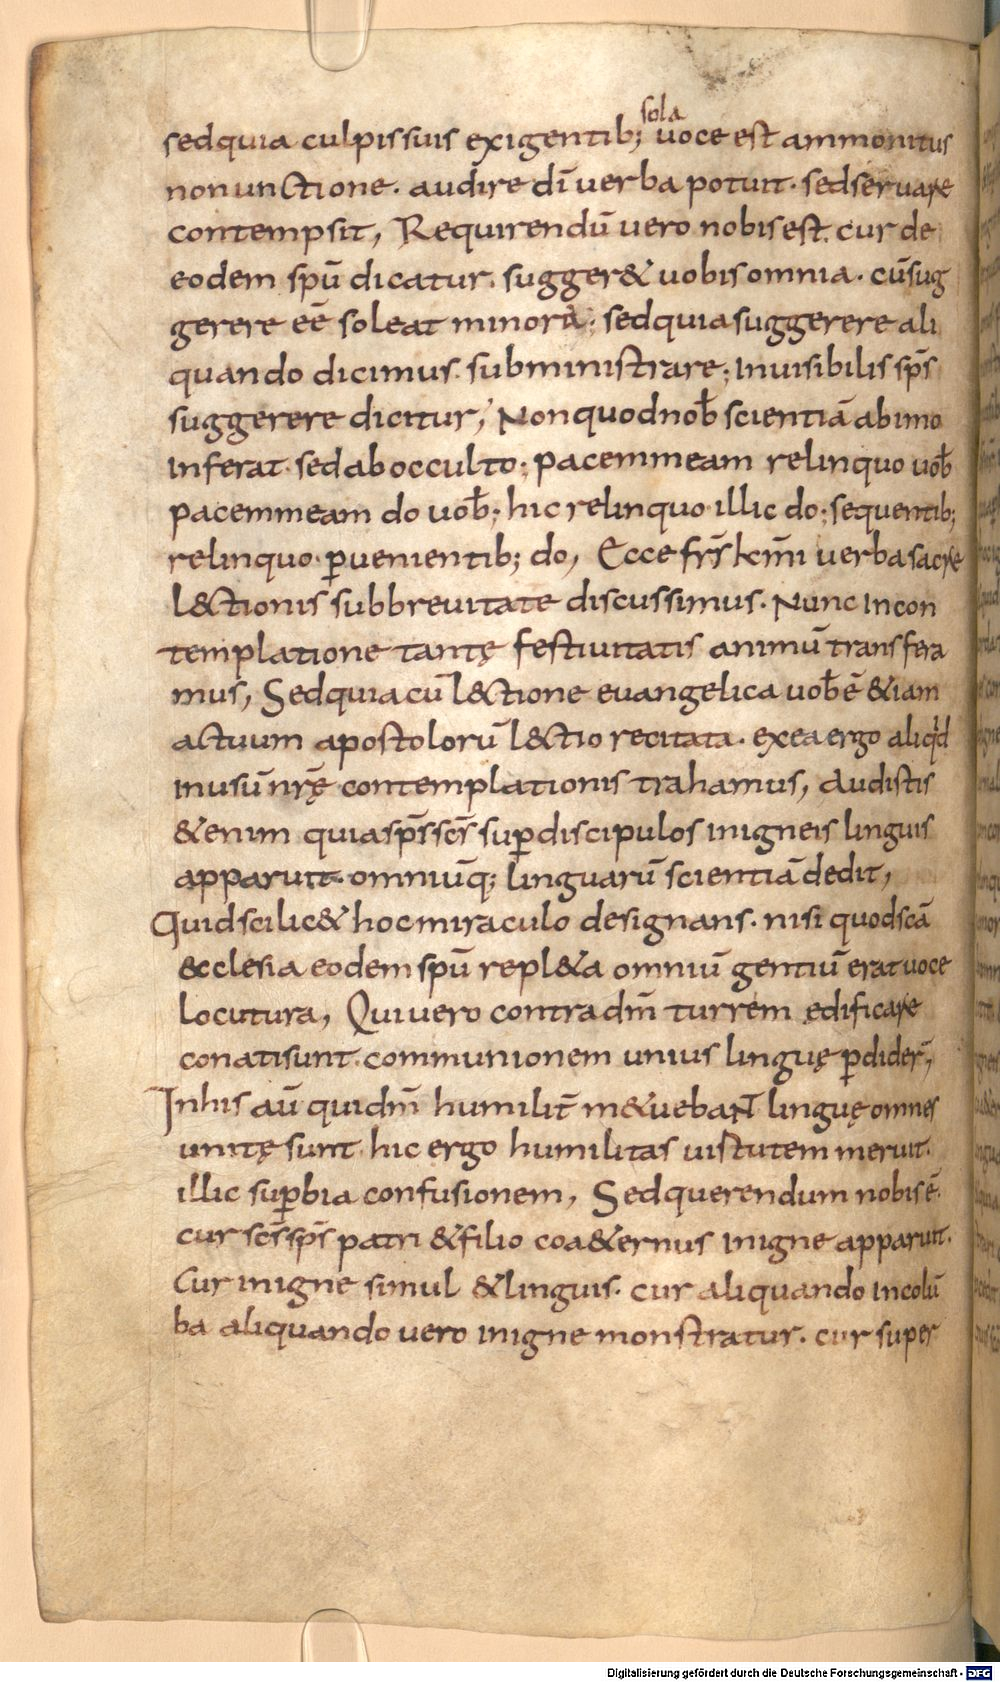 sola
sed quia culpis suis exigentib; uoce est ammonitus
non unctione. audire dī uerba potuit. sed seruare
contempsit, Requirendū uero nobis est. cur de
eodem spū dicatur. sugger& uobis omnia. cū sug
gerere eē soleat minorū; sed quia suggerere ali
quando dicimus subministrare; Inuisibilis sps̄
suggerere dicitur, Non quod nob̄ scientiā ab imo
inferat. sed ab occulto; pacem meam relinquo uob̄
pacem meam do uob̄; hic relinquo illic do; sequentib;
relinquo. ꝑuenientib; do, Ecce frs̄ km̄i uerba sacre
l&ctionis sub breuitate discussimus. Nunc in con
templatione tantę festiuitatis animū transfera
mus, Sed quia cū l&ctione euangelica uob̄ ē & iam
actuum apostolorū l&ctio recitata. ex ea ergo aliqd
in usū nrę̄ contemplationis trahamus, Audistis
&enim quia sps̄ scs̄ suꝑ discipulos in igneis linguis
apparuit. omniūq; linguarū scientiā dedit,
Quid scilic& hoc miraculo designans. nisi quod scā
ecclesia eodem spū repl&a omniū gentiū erat uoce
locutura, Qui uero contra dm̄ turrem ędificare
conati sunt. communionem unius linguę ꝑdider̄,
In his aū qui dm̄ humilit̄ m&uebant linguę omnes
unitę sunt. hic ergo humilitas uirtutem meruit.
illic suꝑbia confusionem, Sed querendum nobis ē.
cur scs̄ sps̄ patri & filio coa&ernus in igne apparuit.
Cur in igne simul & linguis. cur aliquando in colū
ba aliquando uero in igne monstratur. cur super
Digitalisierung gefördert durch die Deutsche Forschungsgemeinschaft - DFG